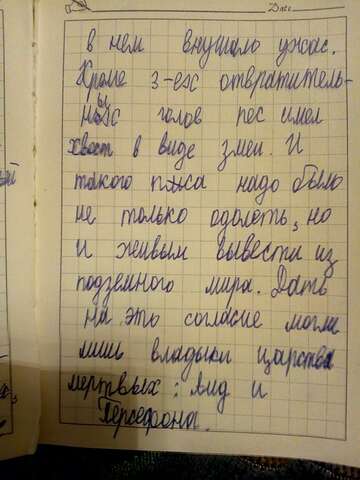 Дата
в нем внушало ужас.
Кроме 3-ех отвратитель-
ных голов пес имел
хвост в виде змеи. И
такого пса надо было
не только одолеть, но
и живым вывести из
подземного мира. Дать
на это согласие могли
лишь владыки царства
мертвых: Аид и
Персефона.